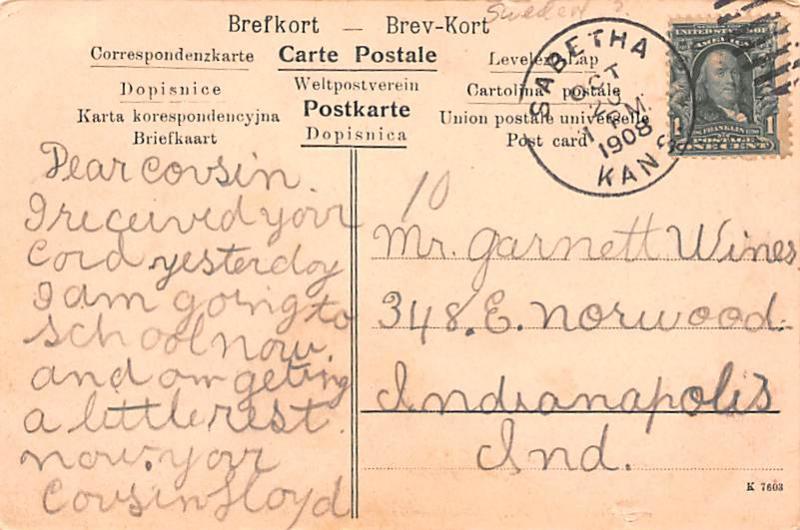 Sweden ?
Brefkort — Brev-Kort
Correspondenzkarte Carte Postale Levelező-Lap
Dopisnice Weltpostverein Cartolina postale
Karta korespondencyjna Postkarte Union postale universelle
Briefkaart Dopisnica Post card
SABETHA
OCT
20
1 PM
1908
KANS
UNITED STATES OF
AMERICA
1 FRANKLIN 1
POSTAGE
ONE CENT
Dear cousin.
I received your
Cord yesterday
I am going to
school now.
and am geting
a little rest.
now. your
Cousin Floyd
10
Mr. Garnett Wines
348. E. Norwood.
Indianapolis
Ind.
K 7603